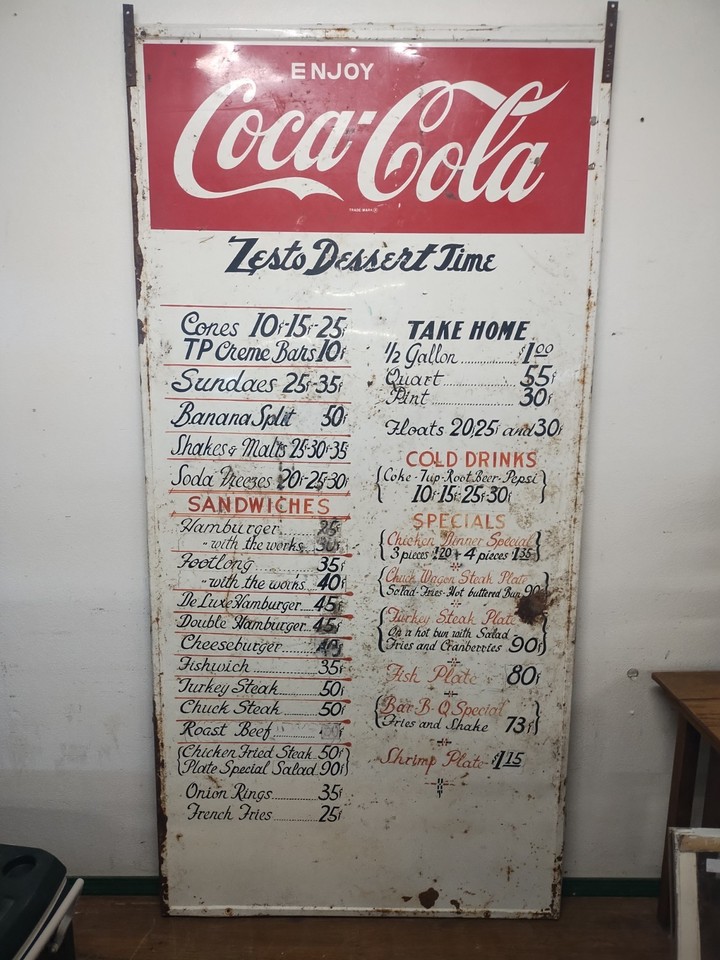 ENJOY
Coca-Cola
TRADE MARK ®
Zesto Dessert Time
Cones 10¢-15¢-25¢
TP Creme Bars 10¢
Sundaes 25¢-35¢
Banana Split 50¢
Shakes & Malts 25-30-35
Soda Freezes 20¢-25-30¢
SANDWICHES
Hamburger 25¢
" with the works 30¢
Footlong 35¢
" with the works 40¢
De Luxe Hamburger 45¢
Double Hamburger 45¢
Cheeseburger
Fishwich 35¢
Turkey Steak 50¢
Chuck Steak 50¢
Roast Beef
Chicken Fried Steak 50¢
Plate Special Salad 90¢
Onion Rings 35¢
French Fries 25¢
TAKE HOME
1/2 Gallon $1.00
Quart 55¢
Pint 30¢
Floats 20,25¢ and 30¢
COLD DRINKS
Coke-7up-Root Beer-Pepsi
10¢-15¢-25¢-30¢
SPECIALS
Chicken Dinner Special
3 pieces $1.20 + 4 pieces $1.35
Chuck Wagon Steak Plate
Salad-Fries-Hot buttered Bun 90¢
Turkey Steak Plate
On a hot bun with Salad
Fries and Cranberries 90¢
Fish Plate 80¢
Bar B-Q Special
Fries and Shake 73¢
Shrimp Plate $1.15